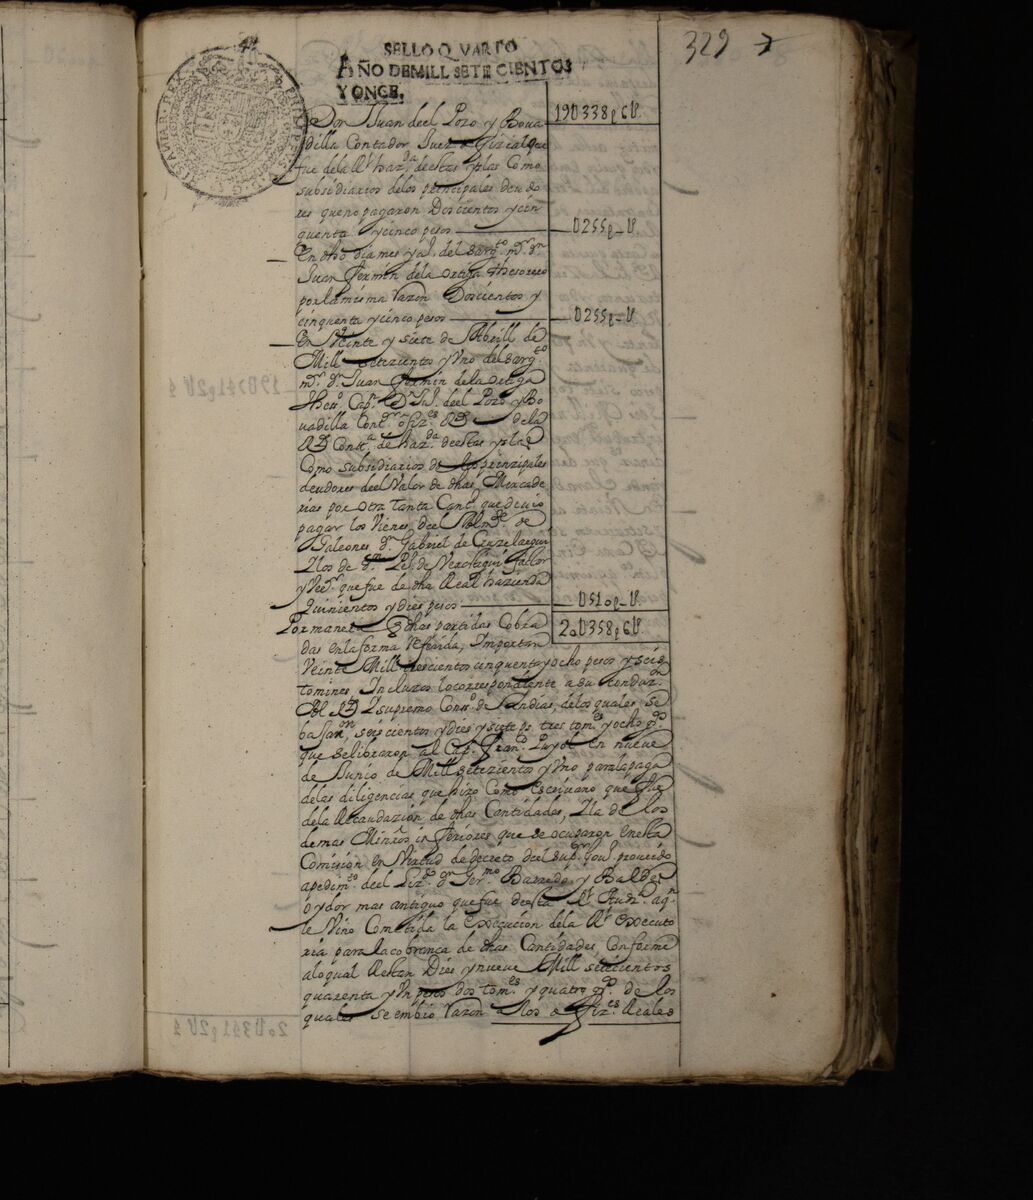 329
SELLO QVARTO
AÑO DE MILL SETE CIENTOS
Y ONCE.
19U338p6U.
Don Juan del Pozo y Boua
dilla Contador Juez oficial que
fue dela Rl. hazda. destas yslas Como
subsidiarios delos principales deudo
res que no pagaron Doscientos y cin
quenta y cinco pesos 0255p_U.
En dho dia mes y año del Sargto. mor. Dn.
Juan fermin dela Ortiga thesorero
por la misma razon Doscientos y
cinquenta y cinco pesos 0255p_U.
En Veinte y siete de Abrill de
Mill setezientos y Vno del Sargto.
mor. Dn. Juan fermin dela Ortiga
Capn. Dn. Jul. del Pozo y Bo
uadilla Contor. ofizes. Rs. dela
Rl. Conta. de hazda. destas yslas
Como subsidiarios de los prinzipales
deudores del Valor de dhas Mercade
rias por otra tanta Cantd. que deuio
pagar los Vienes del Almte. de
Galeones Dn. Gabriel de
Ylos de Dn. factor
y Veer. que fue de dha Real hazienda
Quinientos y dies pesos 0510p_U.
Por manera dhas partidas Cobra
das en la forma referida, Importan 20U358p6U.
Veinte Mill trescientos cinquenta y ocho pesos y seis
tomines, Incluzos lo correspondiente a su Conduzn.
Al Rl. y supremo Conso. de Yndias, de los quales se
baxaron, seis cientos y dies y siete ps. tres tomes. y ocho gos.
que se libraron al Capn. Frano. Puyol en nueve
de Junio de Mill setezientos y Vno para la paga
delas diligencias que hizo Como escriuano que fue
dela Recaudazion de dhas Cantidades, Yla de los
demas Minros inferiores que se ocuparon en esta
Comision en Virtud de decreto del supor. gouo. proueido
a pedimto. del Lizdo. Dn. Germo. Barredo y Baldes
oydor mas antiguo que fue desta Rl. Auda. aqn.
le Vino Cometida la execucion dela Rl. executo
ria para la cobranca de dhas Cantidades Conforme
alo qual Restan Dies y nueve Mill setecientos
quarenta y Vn pesos dos tomes. y quatro gos. de los
quales se embio razon a los ofizes. Reales